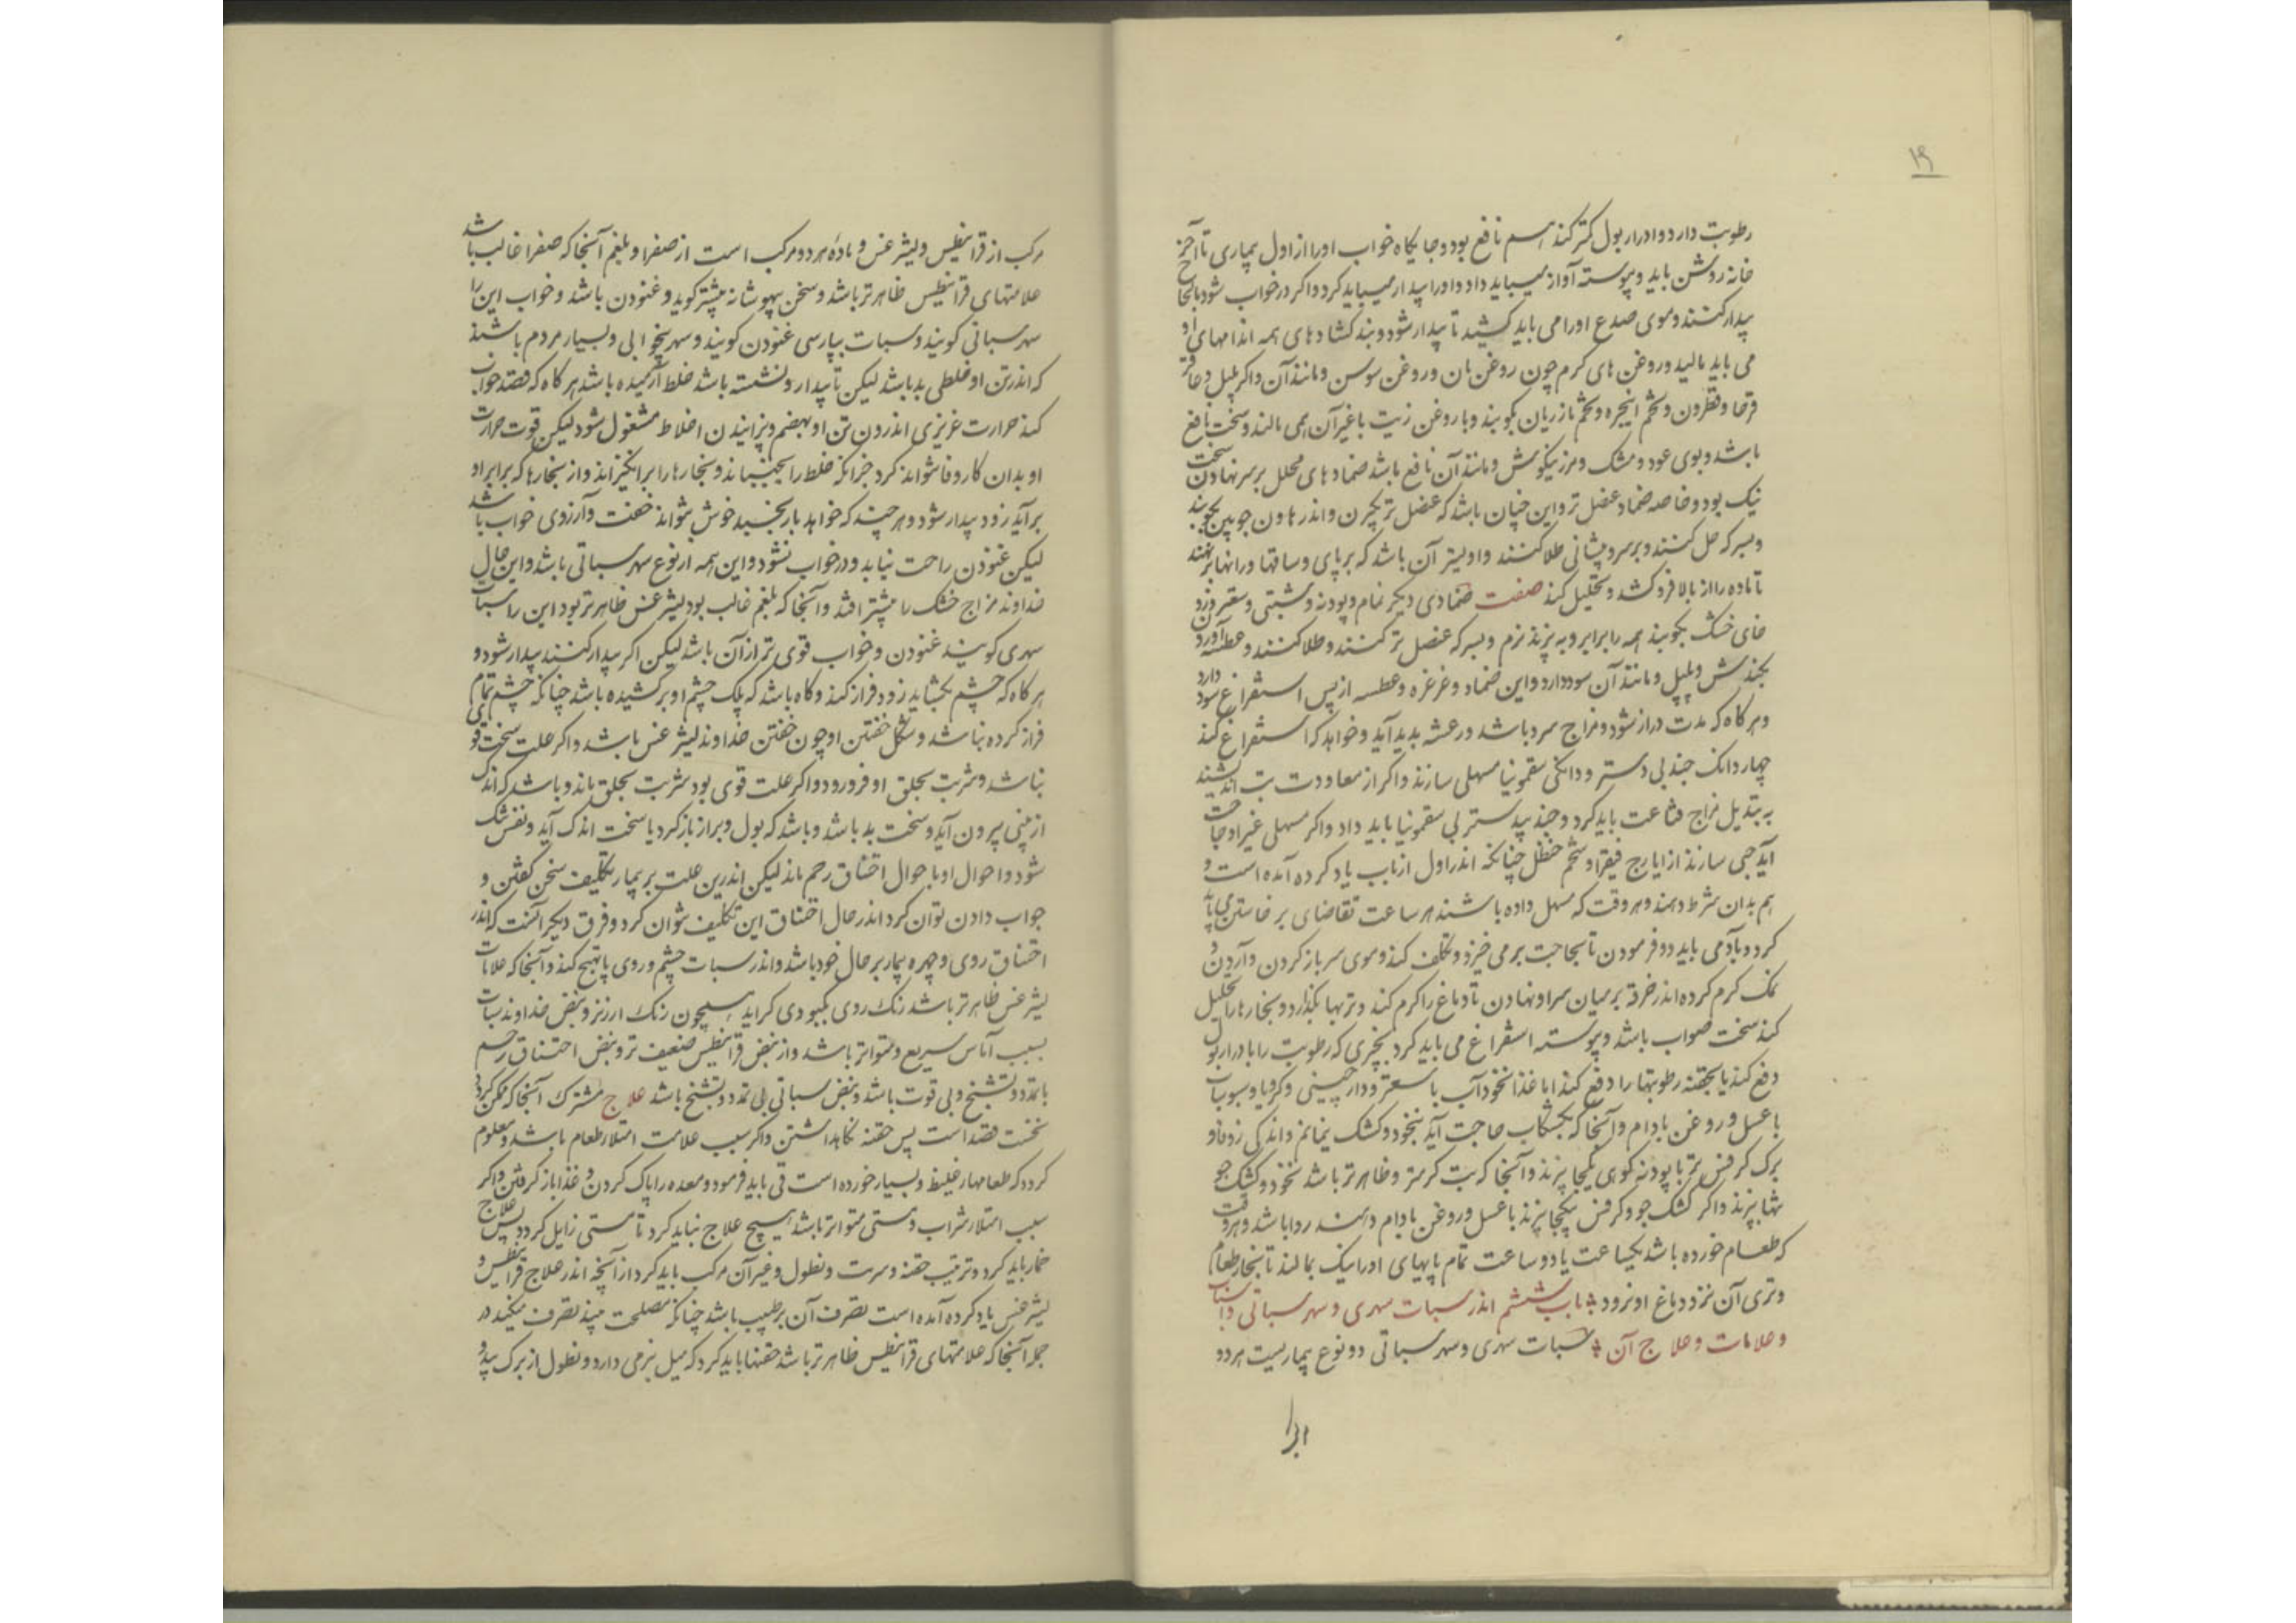 ۱۹
رطوبت دارد و ادرار بول کمتر کند هم نافع بود و جایگاه خواب او را از اول بیماری تا آخر
خانه روشن باید و پیوسته آواز میباید داد و او را بیدار میباید کرد و اگر در خواب شود بانجا
بیدار کنند و موی صدغ او را می باید کشید تا بیدار شود و بند کشادهای همه اندامهای او
می باید مالید و روغن های گرم چون روغن بان و روغن سوسن و مانند آن و اگر پلپل و عاقر
قرحا و نطرون و تخم انجره و تخم مازریان بکوبند و با روغن زیت یا غیر آن همی مالند و سخت نافع
باشد و بوی عود و مشک و مرزنگوش و مانند آن نافع باشد ضمادهای محلل بر سر نهادن سخت
نیک بود و خاصه ضماد عنصل تر و این چنان باشد که عنصل تر بگیرن و اندر هاون چوبین بکوبند
و بسرکه حل کنند و بر سر و پیشانی طلا کنند و اولیتر آن باشد که بر پای و ساقها و رانها برنهند
تا ماده را از بالا فرو کشد و تحلیل کند صفت ضمادی دیگر نمام و پودنه و شبتی و سعتر و زو
فای خشک بکوبند همه را برابر و بپزند نرم و بسرکه عنصل تر کنند و طلا کنند و عطسه آورد
بکندش و پلپل و مانند آن سود دارد و این ضماد و غرغره و عطسه از پس استفراغ سود دارد
و هر گاه که مدت دراز شود و مزاج سرد باشد و رعشه بدید آید و خواهد که استفراغ کند
چهار دانک جند بی دستر و دانکی سقمونیا مسهلی سازند و اگر از معاودت تب اندیشند
به تبدیل مزاج قناعت باید کرد و جند بیدستر بی سقمونیا باید داد و اگر مسهلی غیر او حاجت
آید حبی سازند از ایارج فیقرا و شحم حنظل چنانکه اندر اول از باب یاد کرده آمده است و
هم بدان شرط دهند و هر وقت که مسهل داده باشند هر ساعت تقاضای بر خاستن می باید
کرد و بآدمی باید دو فرمودن تا بحاجت بر می خیزد و تکلف کند و موی سر باز کردن و آردن و
نمک گرم کرده اندر خرقه بر میان سر او نهادن تا دماغ را گرم کند و تریها بگذارد و بخارها را تحلیل
کند سخت صواب باشد و پیوسته استفراغ می باید کرد بچیزی که رطوبت را بادرار بول
دفع کند یا بحقنه رطوبتها را دفع کند اما غذا نخود آب با سعتر و دارچینی و کرویا و سبوساب
با عسل و روغن بادام و آنجا که بکشکاب حاجت آید نخود و کشک بیامیزند و اندکی زوفا و
برگ کرفس تر با پودنه کوهی یکجا بپزند و آنجا که تب گرمتر و ظاهرتر باشد نخود و کشک جو
تنها بپزند و اگر کشک جو و کرفس یکجا بپزند با عسل و روغن بادام دهند روا باشد و هر وقت
که طعام خورده باشد یکساعت یا دو ساعت تمام پایهای او را نیک بمالند تا بخار طعام
و تری آن نزد دماغ او نرود باب ششم اندر سبات سهری و سهر سباتی و اسباب
و علامات و علاج آن سبات سهری و سهر سباتی دو نوع بیماریست هر دو
مرکب از قرانیطس و لیثرغس و ماده هر دو مرکب است از صفرا و بلغم آنجا که صفرا غالب باشد
علامتهای قرانیطس ظاهرتر باشد و سخن بیهوشانه بیشتر گوید و غنودن باشد و خواب این را
سهر سباتی گویند و سبات بپارسی غنودن گویند و سهر بیخوابی و بسیار مردم باشند
که اندر تن او خلطی بد باشد لیکن تا بیدار و نشسته باشد خلط آرمیده باشد هر گاه که قصد خواب
کند حرارت غریزی اندرون تن او بهضم و پزانیدن اخلاط مشغول شود لیکن قوت حرارت
او بدان کار وفا نتواند کرد جز آنکه خلط را بجنباند و بخارها را بر انگیزاند و از بخارها که بر ابر او
بر آید زود بیدار شود و هر چند که خواهد باز بخسبد خوش نتواند خفت و آرزوی خواب باشد
لیکن غنودن راحت نیابد و در خواب نشود و این همه از نوع سهر سباتی باشد و این حال
خداوند مزاج خشک را بیشتر افتد و آنجا که بلغم غالب بود لیثرغس ظاهرتر بود این را سبات
سهری گویند غنودن و خواب قوی تر از آن باشد لیکن اگر بیدار کنند بیدار شود و
هر گاه که چشم بگشاید زود فراز کند و گاه باشد که پلک چشم او بر کشیده باشد چنانکه چشم تمام
فراز کرده نباشد و شکل خفتن او چون خفتن خداوند لیثرغس باشد و اگر علت سخت قوی
نباشد و شربت بحلق او فرو رود و اگر علت قوی بود شربت بحلق ماند و باشد که اندک
از بینی بیرون آید و سخت بد باشد و باشد که بول و براز باز گرد یا سخت اندک آید و نفس تنک
شود و احوال او با حوال اختناق رحم ماند لیکن اندرین علت بر بیمار تکلیف سخن گفتن و
جواب دادن توان کرد اندر حال اختناق این تکلیف نتوان کرد و فرق دیگر آنست که اندر
اختناق روی و چهره بیمار بر حال خود باشد و اندر سبات چشم و روی پا تهبج کند و آنجا که علامات
لیثرغس ظاهرتر باشد رنک روی بکبودی گراید همچون رنک ارزیز و نبض خداوند سبات
بسبب آماس سریع و متواتر باشد و از نبض قرانیطس ضعیف تر و نبض اختناق رحم
با تمدد و تشنج و بی قوت باشد و نبض سباتی بی تمدد و تشنج باشد علاج مشترک آنجا که ممکن گردد
نخست فصد است پس حقنه نگاهداشتن و اگر سبب علامت امتلا طعام باشد و معلوم
گردد که طعامها غلیظ و بسیار خورده است قی باید فرمود و معده را پاک کردن و غذا باز گرفتن و اگر
سبب امتلا شراب و مستی متواتر باشد هیچ علاج نباید کرد تا مستی زایل گردد پس علاج
خمار باید کرد و ترتیب حقنه و مرت و نطول و غیر آن مرکب باید کرد از آنچه اندر علاج قرانیطس و
لیثرغس یاد کرده آمده است تصرف آن بر طبیب باشد چنانکه مصلحت بیند تصرف میکند در
جمله آنجا که علامتهای قرانیطس ظاهرتر باشد حقنها باید کرد که میل بنرمی دارد و نطول از برگ بید و